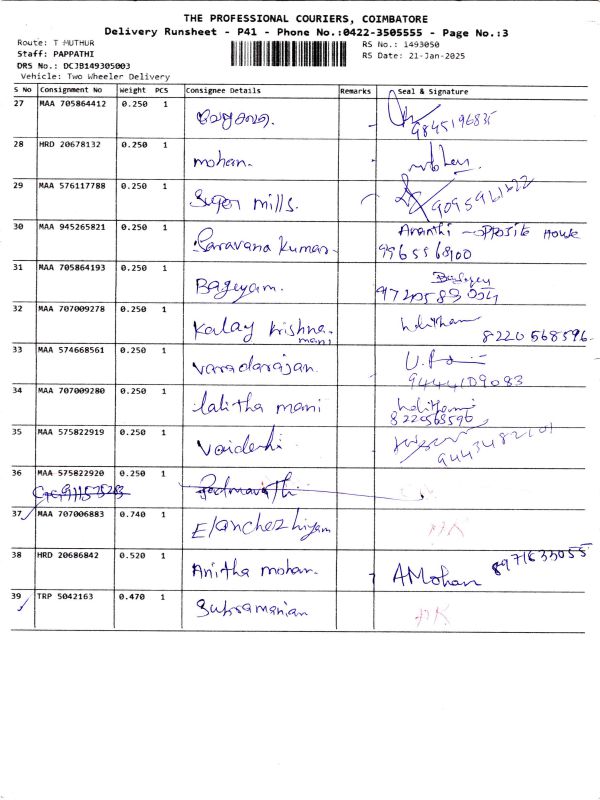 THE PROFESSIONAL COURIERS, COIMBATORE
Delivery Runsheet - P41 - Phone No.:0422-3505555 - Page No.:3
Route: T MUTHUR
RS No.: 1493050
Staff: PAPPATHI
RS Date: 21-Jan-2025
DRS No.: DCJB149305003
Vehicle: Two Wheeler Delivery
S No Consignment No Weight PCS Consignee Details Remarks Seal & Signature
27 MAA 705864412 0.250 1
9845196835
28 HRD 20678132 0.250 1
mohan.
29 MAA 576117788 0.250 1
Super mills.
30 MAA 945265821 0.250 1 Ananthi - opposite House
Saravana Kumar.
31 MAA 705864193 0.250 1
Bageyam.
32 MAA 707009278 0.250 1 Lalitham
Kalay Krishna mani 8220568596.
33 MAA 574668561 0.250 1
Varadarajan. 9444109083
34 MAA 707009280 0.250 1
lalitha mani 8220568596
35 MAA 575822919 0.250 1
Vaidehi
36 MAA 575822920 0.250 1
Padmavathi
37 MAA 707006883 0.740 1
Elanchezhiyam
38 HRD 20686842 0.520 1
Anitha mohan. AMohan 8971633055
39 TRP 5042163 0.470 1
Subramanian